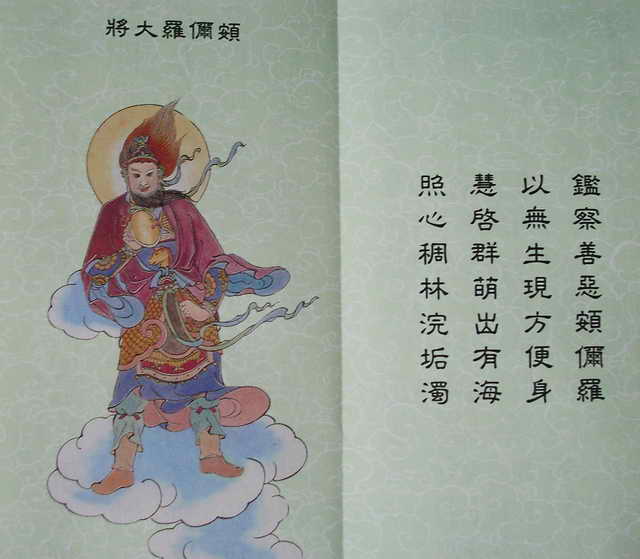 頞儞羅大將
鑑察善惡頞儞羅
以無生現方便身
慧啓群萌出有海
照心稠林浣垢濁